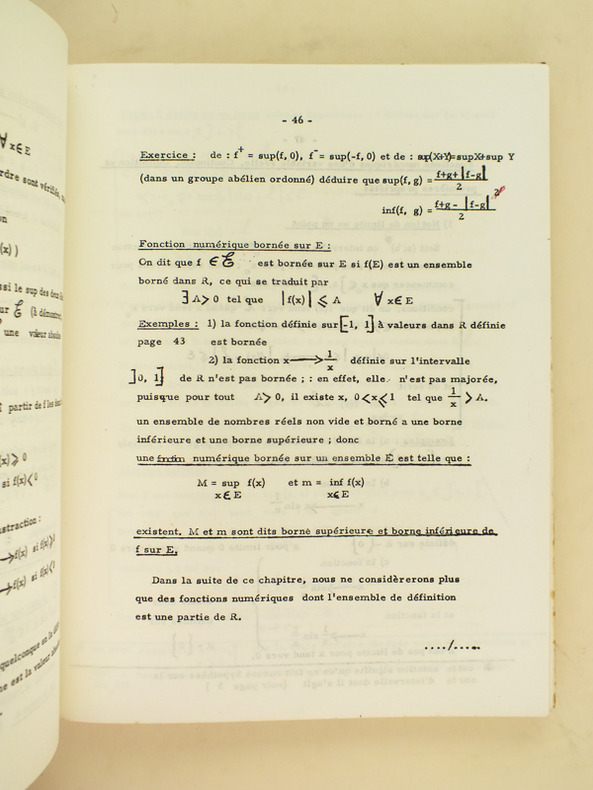 - 46 -
Exercice : de : f⁺ = sup(f, 0), f⁻ = sup(-f, 0) et de : sup(X+Y)=supX+sup Y
(dans un groupe abélien ordonné) déduire que sup(f, g) = f+g+|f-g| / 2
inf(f, g) = f+g - |f-g| / 2
Fonction numérique bornée sur E :
On dit que f ∈ ℰ est bornée sur E si f(E) est un ensemble
borné dans R, ce qui se traduit par
∃ A> 0 tel que |f(x)| ⩽ A ∀ x∈ E
Exemples : 1) la fonction définie sur [-1, 1] à valeurs dans R définie
page 43 est bornée
2) la fonction x ⟶ 1/x définie sur l'intervalle
]0, 1] de R n'est pas bornée ; : en effet, elle n'est pas majorée,
puisque pour tout A> 0, il existe x, 0<x⩽1 tel que 1/x > A.
un ensemble de nombres réels non vide et borné a une borne
inférieure et une borne supérieure ; donc
une fonction numérique bornée sur un ensemble E est telle que :
M = sup f(x) et m = inf f(x)
x∈ E x∈ E
existent. M et m sont dits borne supérieure et borne inférieure de
f sur E.
Dans la suite de ce chapitre, nous ne considèrerons plus
que des fonctions numériques dont l'ensemble de définition
est une partie de R.
..../.....
∀ x∈ E
(x) )
si f(x)<0